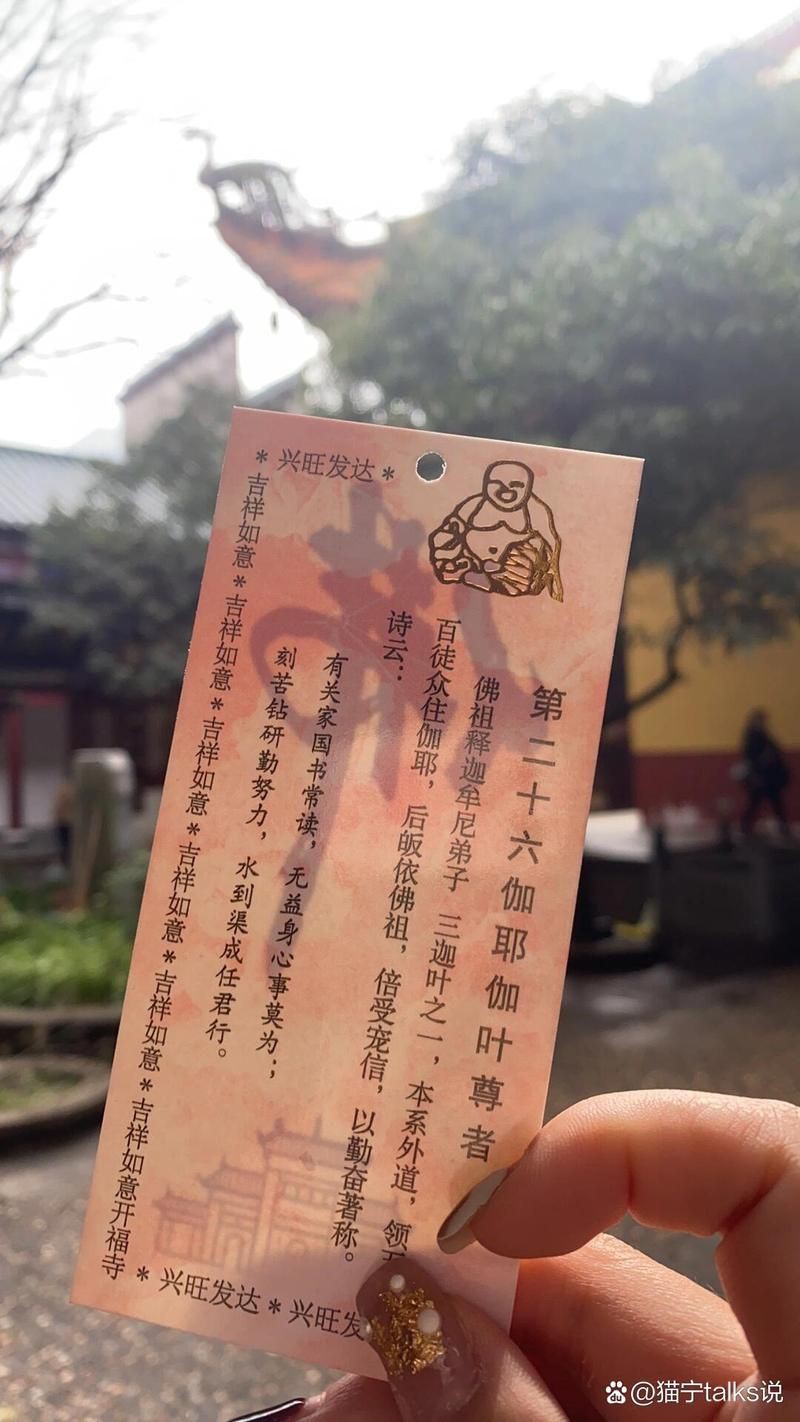 * 兴旺发达 *
第二十六伽耶伽叶尊者
佛祖释迦牟尼弟子 三迦叶之一，本系外道，领
百徒众住伽耶，后皈依佛祖，倍受宠信，以勤奋著称。
诗云：
有关家国书常读，无益身心事莫为；
刻苦钻研勤努力，水到渠成任君行。
吉祥如意 * 吉祥如意 * 吉祥如意 * 吉祥如意 * 吉祥如意 * 吉祥如意开福寺
* 兴旺发达 * 兴旺发
@猫宁talks说